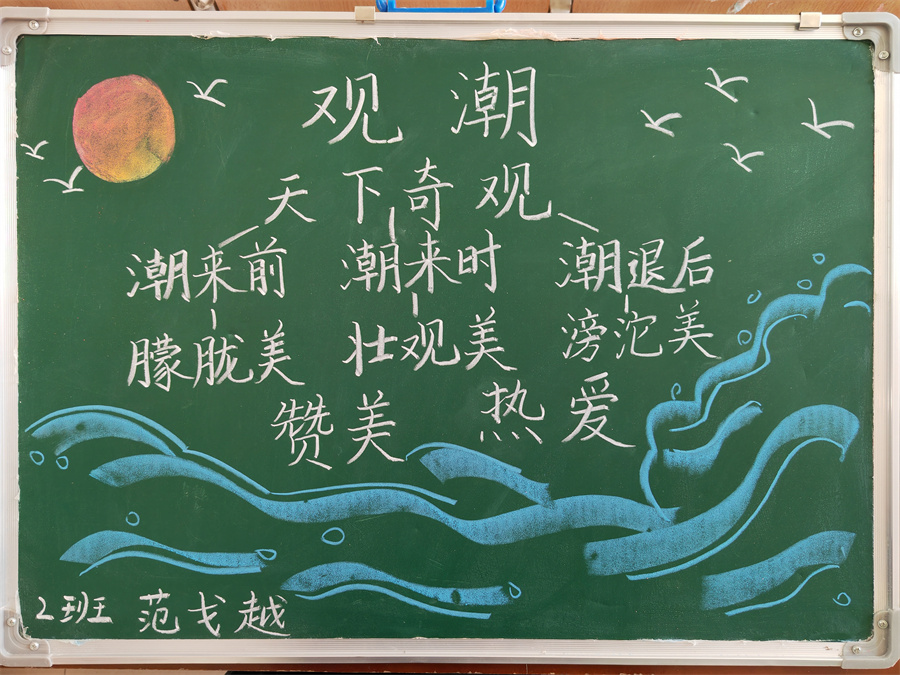 观 潮
天 下 奇 观
潮来前 潮来时 潮退后
朦胧美 壮观美 滂沱美
赞美 热爱
2班 范戈越